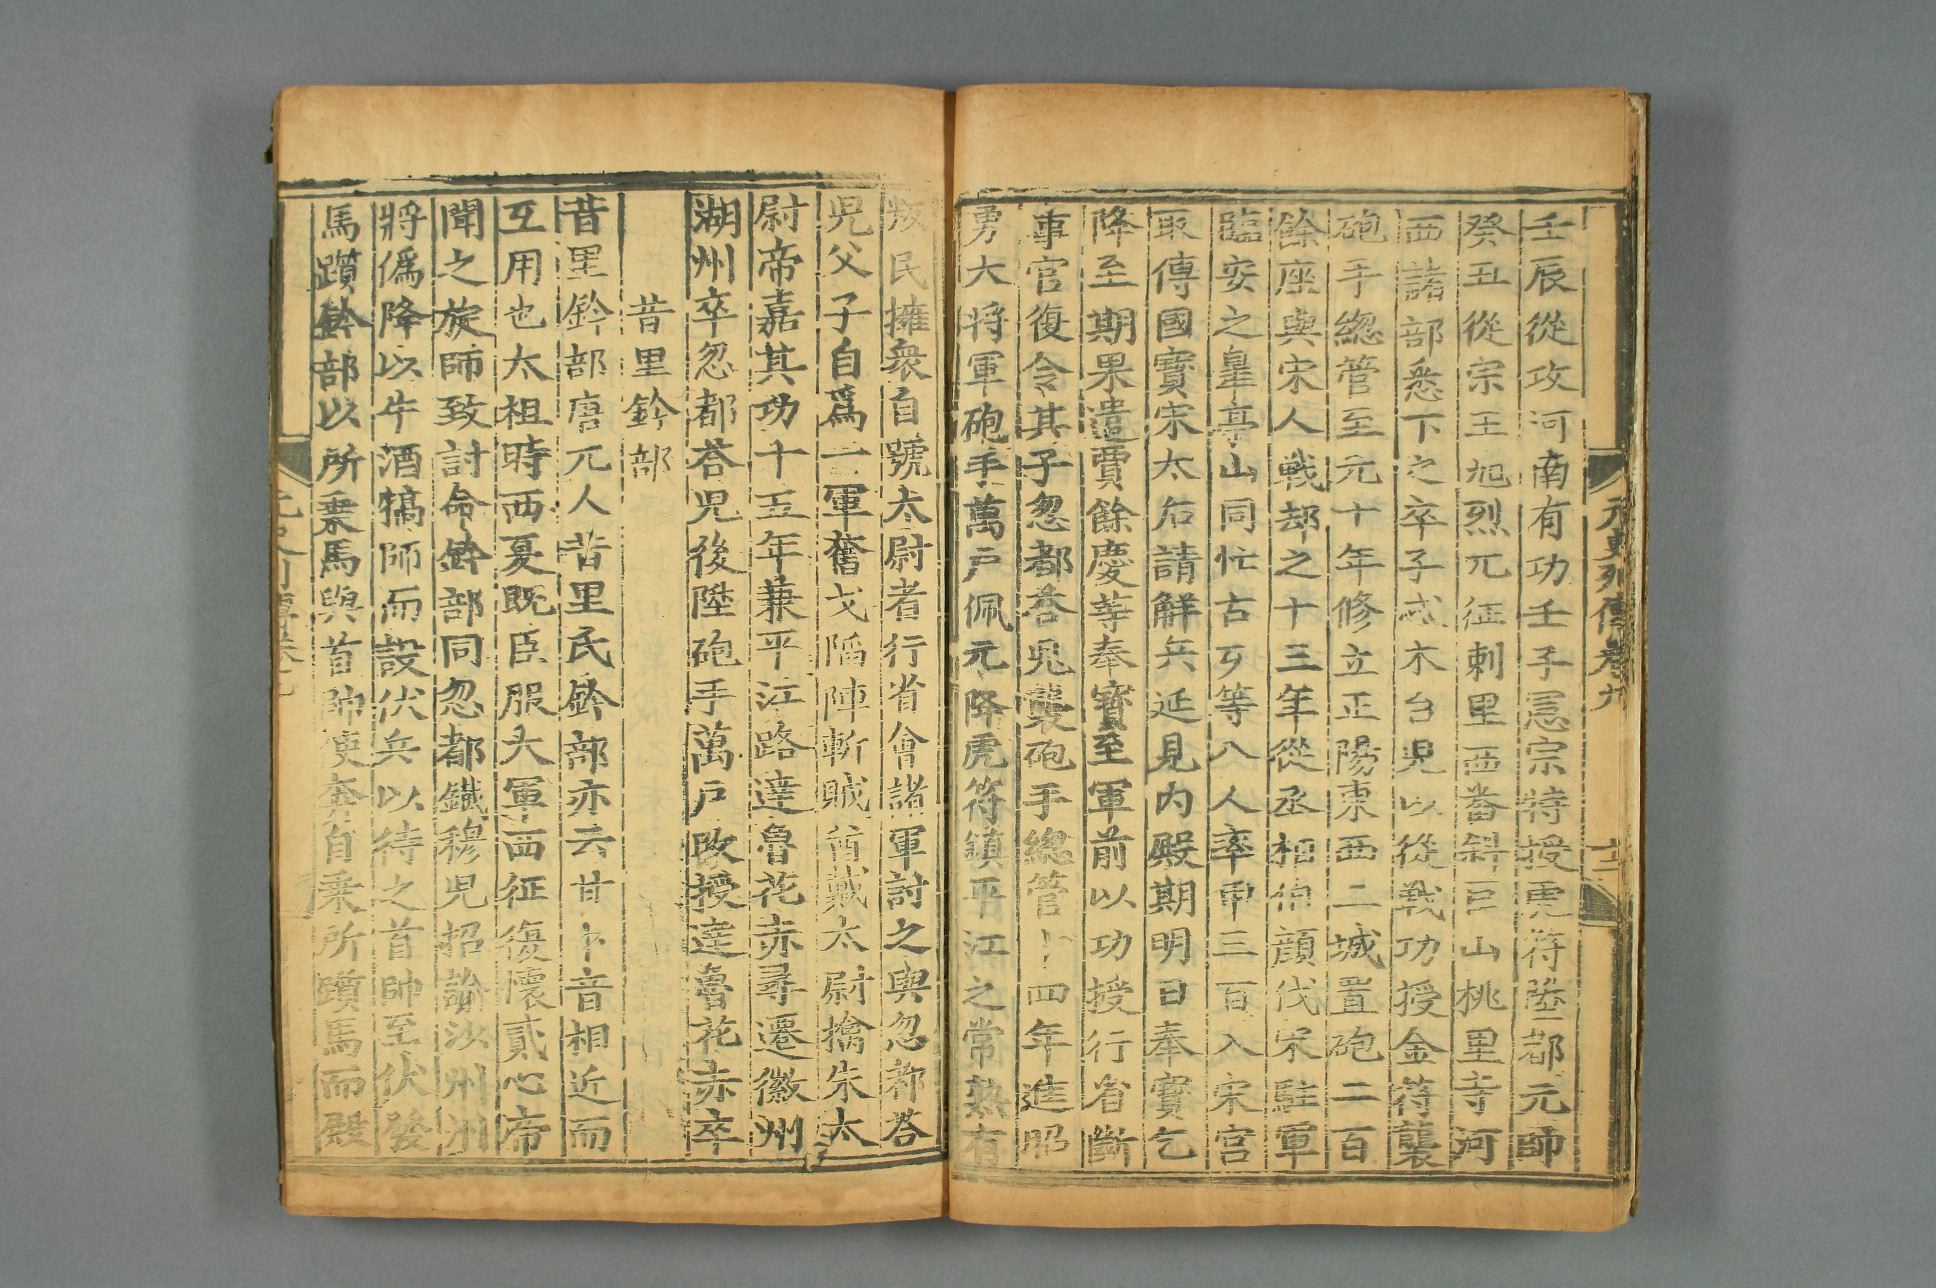 元史列傳卷九
十二
壬辰從攻河南有功壬子憲宗特授虎符陞都元帥
癸丑從宗王旭烈兀征剌里西番斜巨山桃里寺河
西諸部悉下之卒子忒木台兒以從戰功授金符襲
砲手總管至元十年修立正陽東西二城置砲二百
餘座與宋人戰却之十三年從丞相伯顔伐宋駐軍
臨安之皐亭山同忙古歹等八人率甲三百入宋宫
取傳國寳宋太后請解兵延見内殿期明日奉寳乞
降至期果遣賈餘慶等奉寳至軍前以功授行省斷
事官復令其子忽都荅兒襲砲手總管十四年進昭
勇大将軍砲手萬戶佩元降虎符鎮平江之常熟有
叛民擁衆自號太尉者行省會諸軍討之與忽都荅
兒父子自爲一軍奮戈陷陣斬賊酋戴太尉擒朱太
尉帝嘉其功十五年兼平江路達魯花赤尋遷徽州
湖州卒忽都荅兒後陞砲手萬戶改授達魯花赤卒
昔里鈐部
昔里鈐部唐兀人昔里氏鈐部亦云甘卜音相近而
互用也太祖時西夏既臣服大軍西征復懷貳心帝
聞之旋師致討命鈐部同忽都鐵穆兒招諭沙州州
將僞降以牛酒犒師而設伏兵以待之首帥至伏發
馬躓鈐部以所乗馬與首帥使奔自乗所躓馬而殿